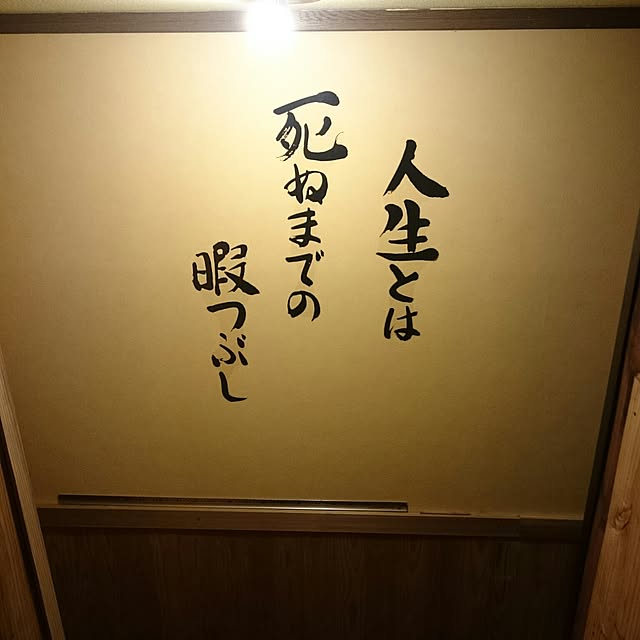 人生とは
死ぬまでの
暇つぶし